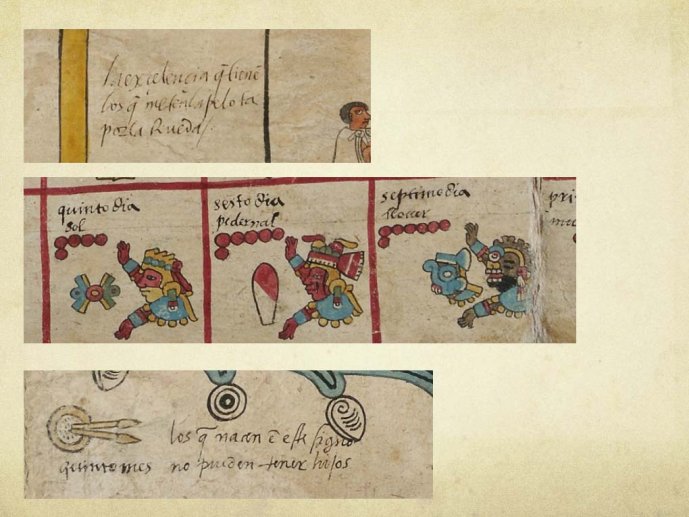 la excelencia q̃ tienē
los q̃ metē la pelota
por la Rueda/.
quinto dia
sol
sesto dia
pedernal
septimo dia
llover
pri
los q̃ nacen ē este signo
quinto mes no pueden tener hijos